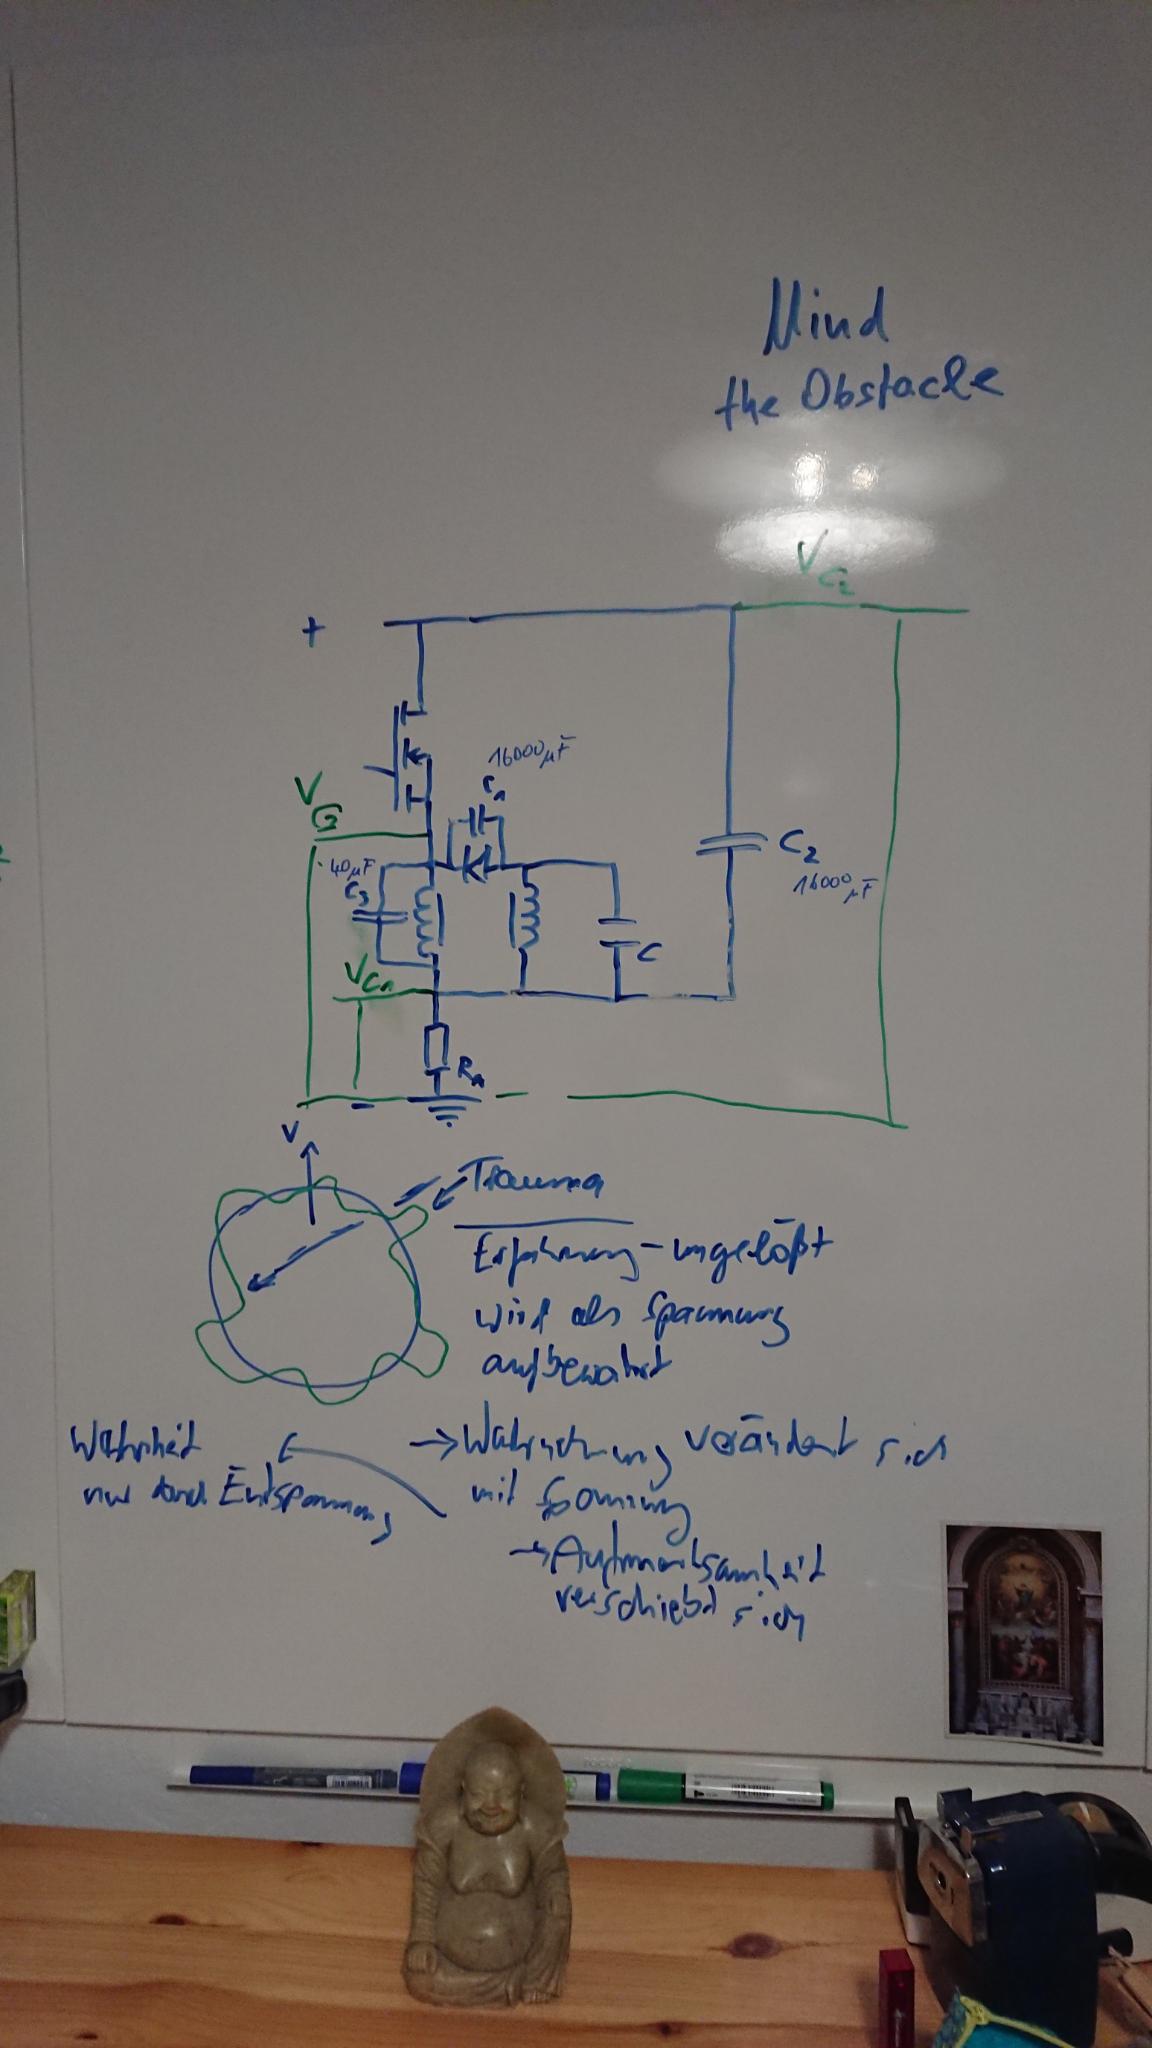 Mind
the Obstacle
VC2
+
16000µF
C1
VG
40µF
C3
C2
16000µF
C
VC1
R1
-
V
Trauma
Erfahrung - ungelößt
wird als Spannung
aufbewahrt
Wahrheit
nur durch Entspannung
→ Wahrnehmung verändert sich
mit Spannung
→ Aufmerksamkeit
verschiebt sich